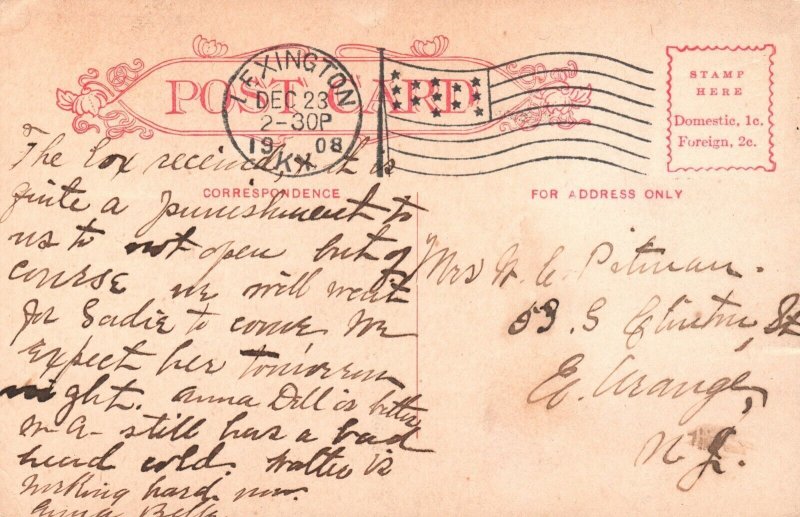 POST CARD
LEXINGTON
DEC 23
2-30P
1908
KY.
STAMP
HERE
Domestic, 1c.
Foreign, 2c.
CORRESPONDENCE
FOR ADDRESS ONLY
The box received, it is
quite a punishment to
us to not open but of
course we will wait
for Sadie to come. We
expect her tomorrow
night. Anna Dell is better
still has a bad
head cold. is
working hard now.
Anna Bell
Mrs W. E. Pitman.
53. S Clinton, St
E. Orange,
N. J.